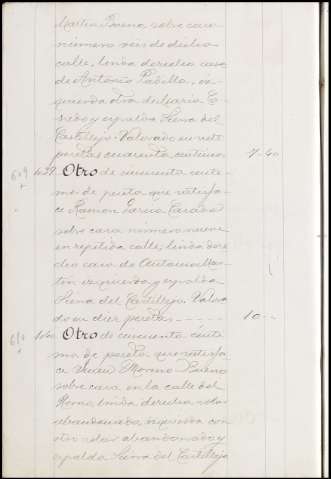 Martin Bueno sobre casa
número seis de dicha
calle, linda derecha casa
de Antonio Padilla, iz-
quierda otra de Mario
y espalda Sierra del
Castillejo. Valorado en siete
pesetas cuarenta céntimos 7-40
609 1639 Otro de cincuenta cénti-
mos de peseta que satisfa-
ce Ramon Garcia
sobre casa número nueve
en repetida calle, linda dere-
cha casa de Antonio
izquierda y espalda
Sierra del Castillejo. Valora-
do en diez pesetas 10--
610 1640 Otro de cincuenta cénti-
mos de peseta que satisfa-
ce Moreno Bueno
sobre casa en la calle del
linda derecha solar
abandonado, izquierda con
otro solar abandonado y
espalda Sierra del Castillejo